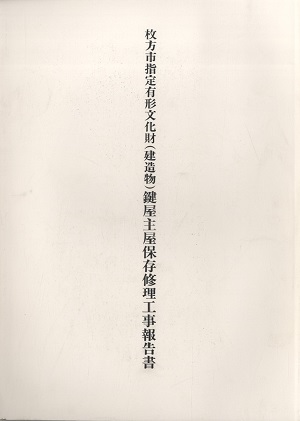 枚方市指定有形文化財(建造物)鍵屋主屋保存修理工事報告書